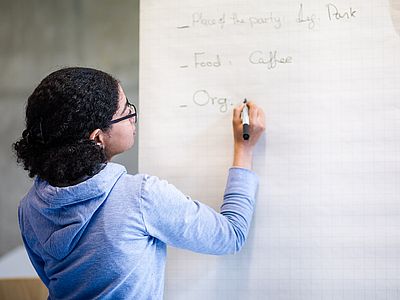 _ Place of the party: Park
_ Food: Caffee
_ Org.